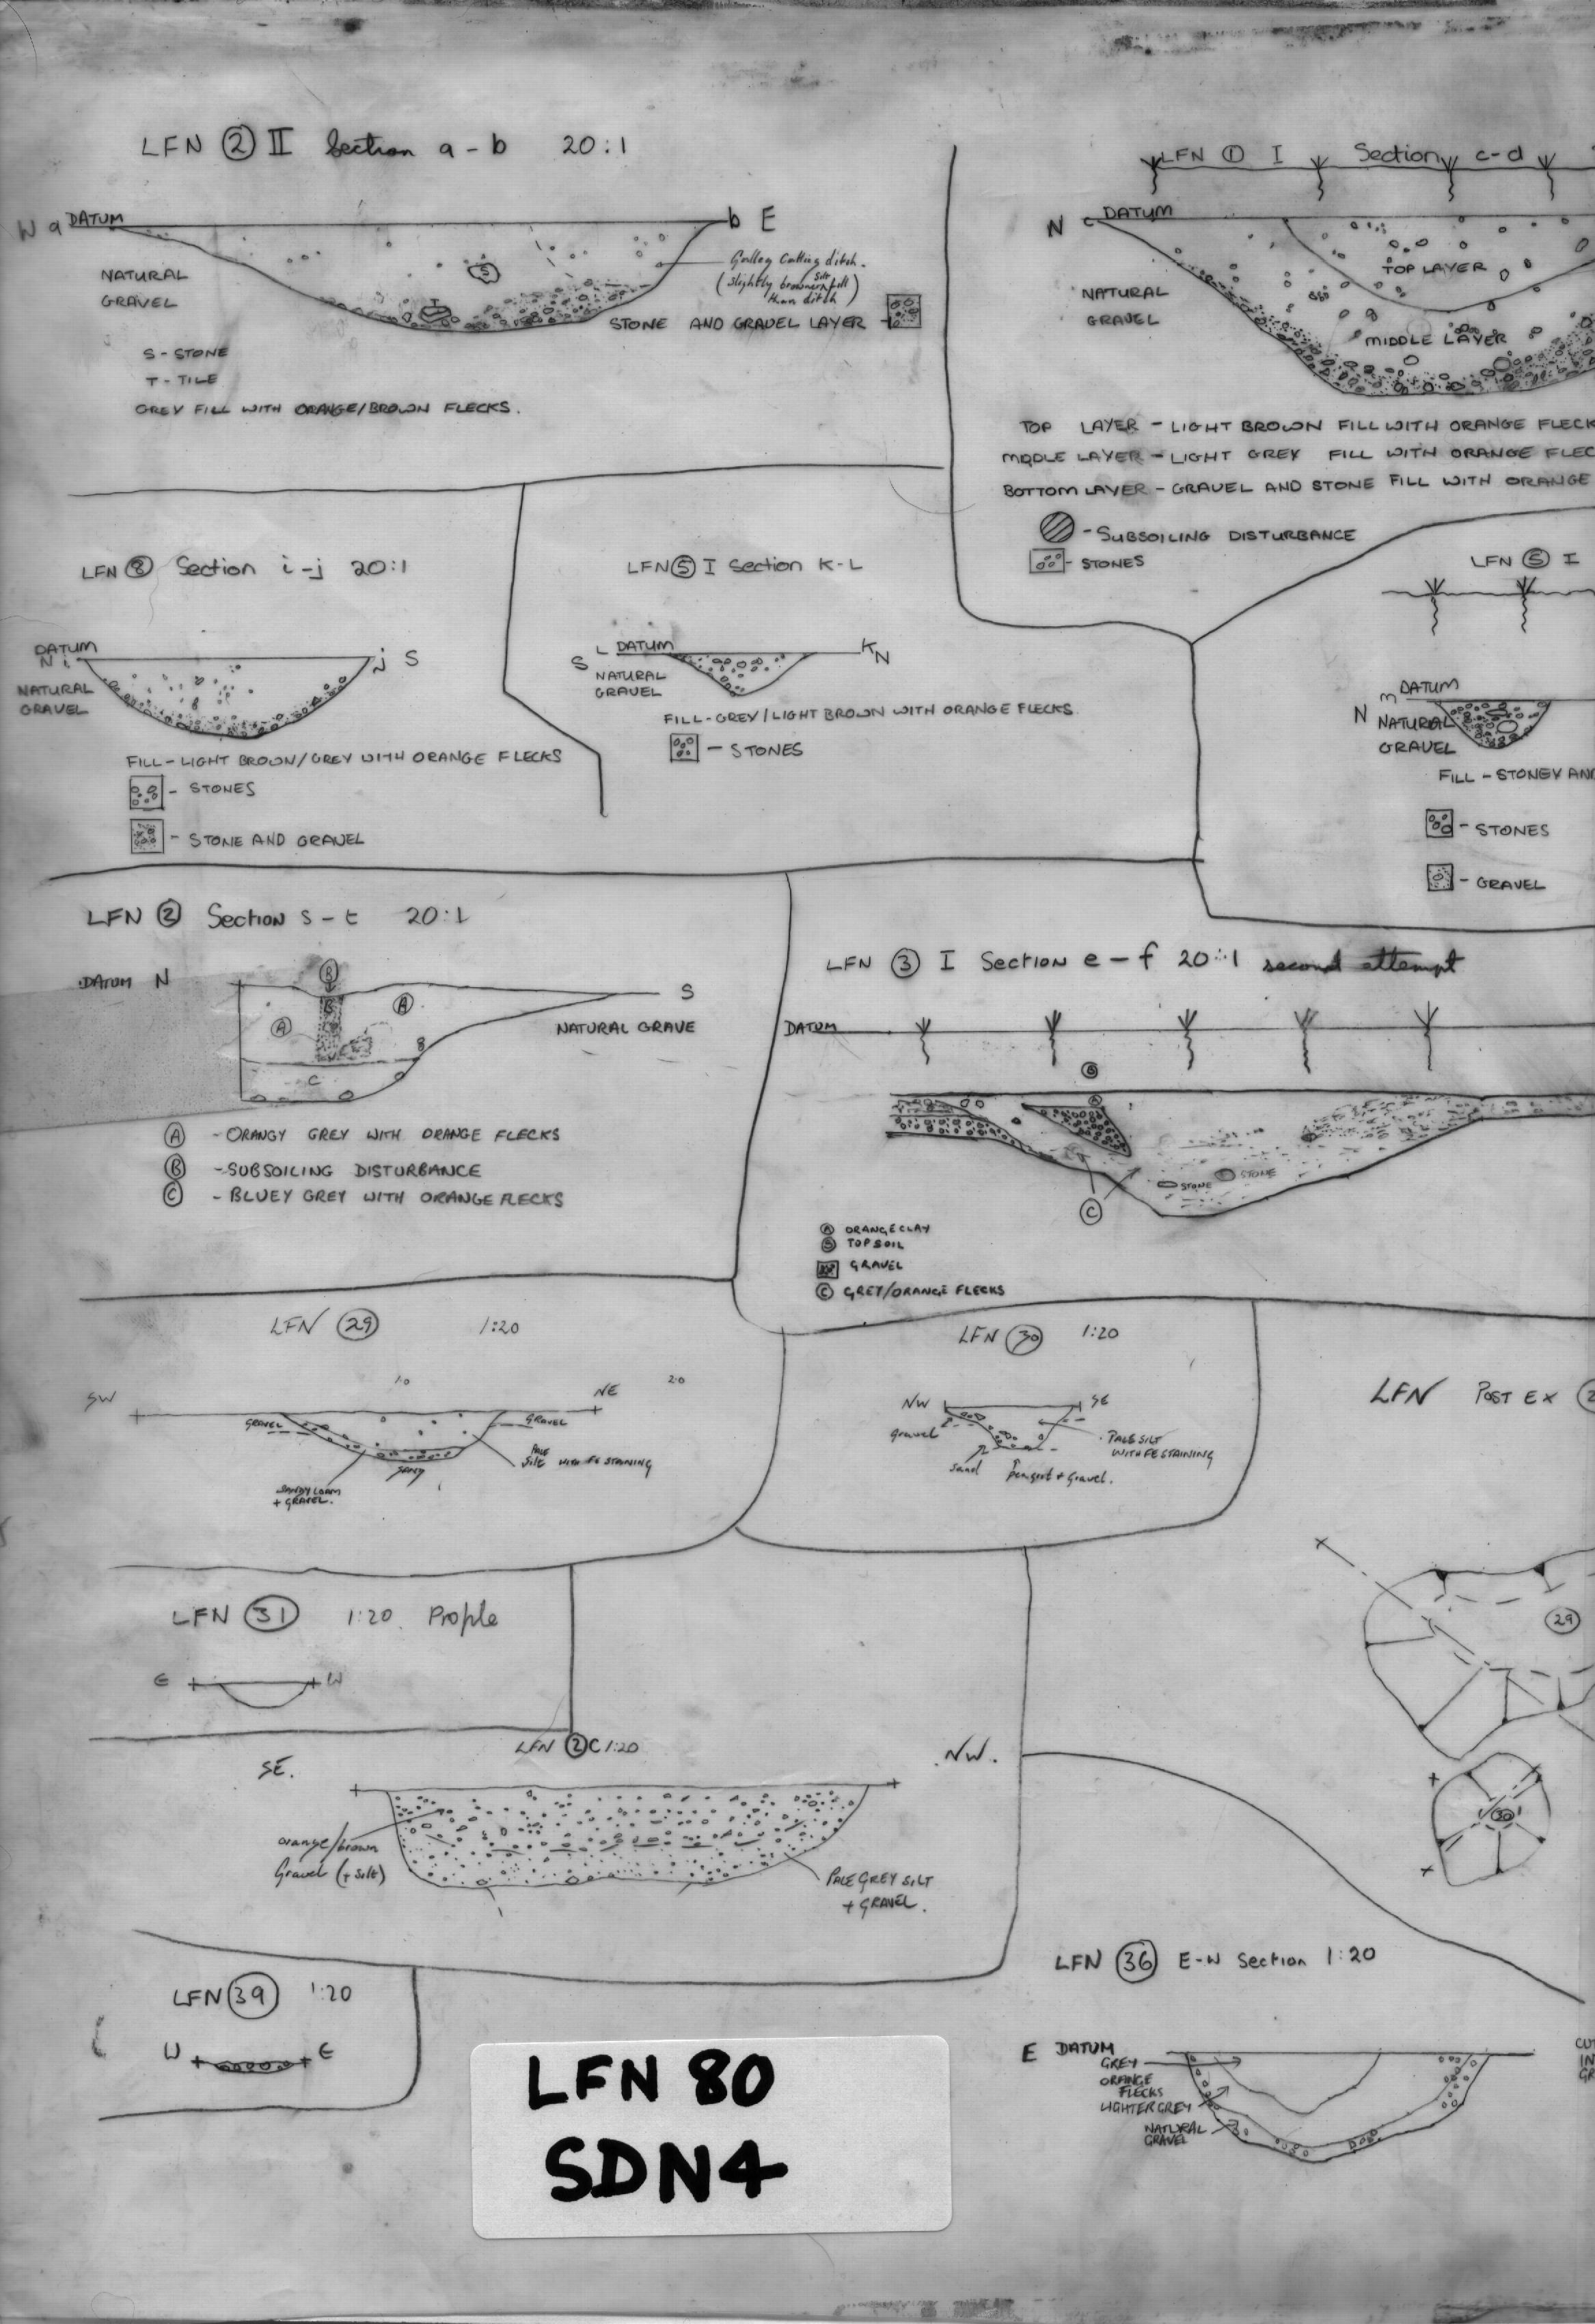 LFN ② II Section a - b 20:1
W a DATUM b E
NATURAL
GRAVEL
Gulley Cutting ditch.
(slightly browner silt fill
than ditch)
STONE AND GRAVEL LAYER -
S
T
S - STONE
T - TILE
GREY FILL WITH ORANGE/BROWN FLECKS.
LFN ① I Section c-d
N c DATUM
NATURAL
GRAVEL
TOP LAYER
MIDDLE LAYER
TOP LAYER - LIGHT BROWN FILL WITH ORANGE FLECK
MIDDLE LAYER - LIGHT GREY FILL WITH ORANGE FLEC
BOTTOM LAYER - GRAVEL AND STONE FILL WITH ORANGE
- SUBSOILING DISTURBANCE
- STONES
LFN ⑧ Section i-j 20:1
DATUM
N i j S
NATURAL
GRAVEL
FILL - LIGHT BROWN/GREY WITH ORANGE FLECKS
- STONES
- STONE AND GRAVEL
LFN ⑤ I Section K-L
S L DATUM K N
NATURAL
GRAVEL
FILL - GREY/LIGHT BROWN WITH ORANGE FLECKS
- STONES
LFN ⑤ I
m DATUM
N NATURAL
GRAVEL
FILL - STONEY AND
- STONES
- GRAVEL
LFN ② Section s - t 20:1
DATUM N S
Ⓑ
Ⓐ Ⓐ
B
C
NATURAL GRAVE
Ⓐ - ORANGY GREY WITH ORANGE FLECKS
Ⓑ - SUBSOILING DISTURBANCE
Ⓒ - BLUEY GREY WITH ORANGE FLECKS
LFN ③ I Section e - f 20:1 second attempt
DATUM
Ⓑ
Ⓐ
STONE STONE
Ⓒ
Ⓐ ORANGE CLAY
Ⓑ TOPSOIL
GRAVEL
Ⓒ GREY/ORANGE FLECKS
LFN ㉙ 1:20
SW 1.0 NE 2.0
GRAVEL GRAVEL
PALE
SILT WITH FE STAINING
SANDY
SANDY LOAM
+ GRAVEL.
LFN ㉚ 1:20
NW SE
gravel
PALE SILT
WITH FE STAINING
sand Peagrit + Gravel.
LFN POST EX
㉙
㉚
LFN ㉛ 1:20. Profile
E W
LFN ② C 1:20
SE. NW.
orange/brown
Gravel (+ silt)
PALE GREY SILT
+ GRAVEL.
LFN ㊴ 1:20
W E
LFN ㊱ E-W Section 1:20
E DATUM
GREY
ORANGE
FLECKS
LIGHTER GREY
NATURAL
GRAVEL
CU
IN
GR
LFN 80
SDN4